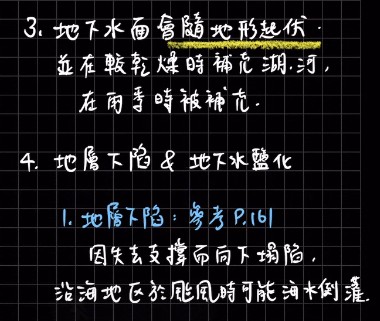 3. 地下水面會隨地形起伏.
並在較乾燥時補充湖.河,
在雨季時被補充.
4. 地層下陷 & 地下水鹽化
1. 地層下陷：參考 P.161
因失去支撐而向下塌陷,
沿海地區於颱風時可能海水倒灌.